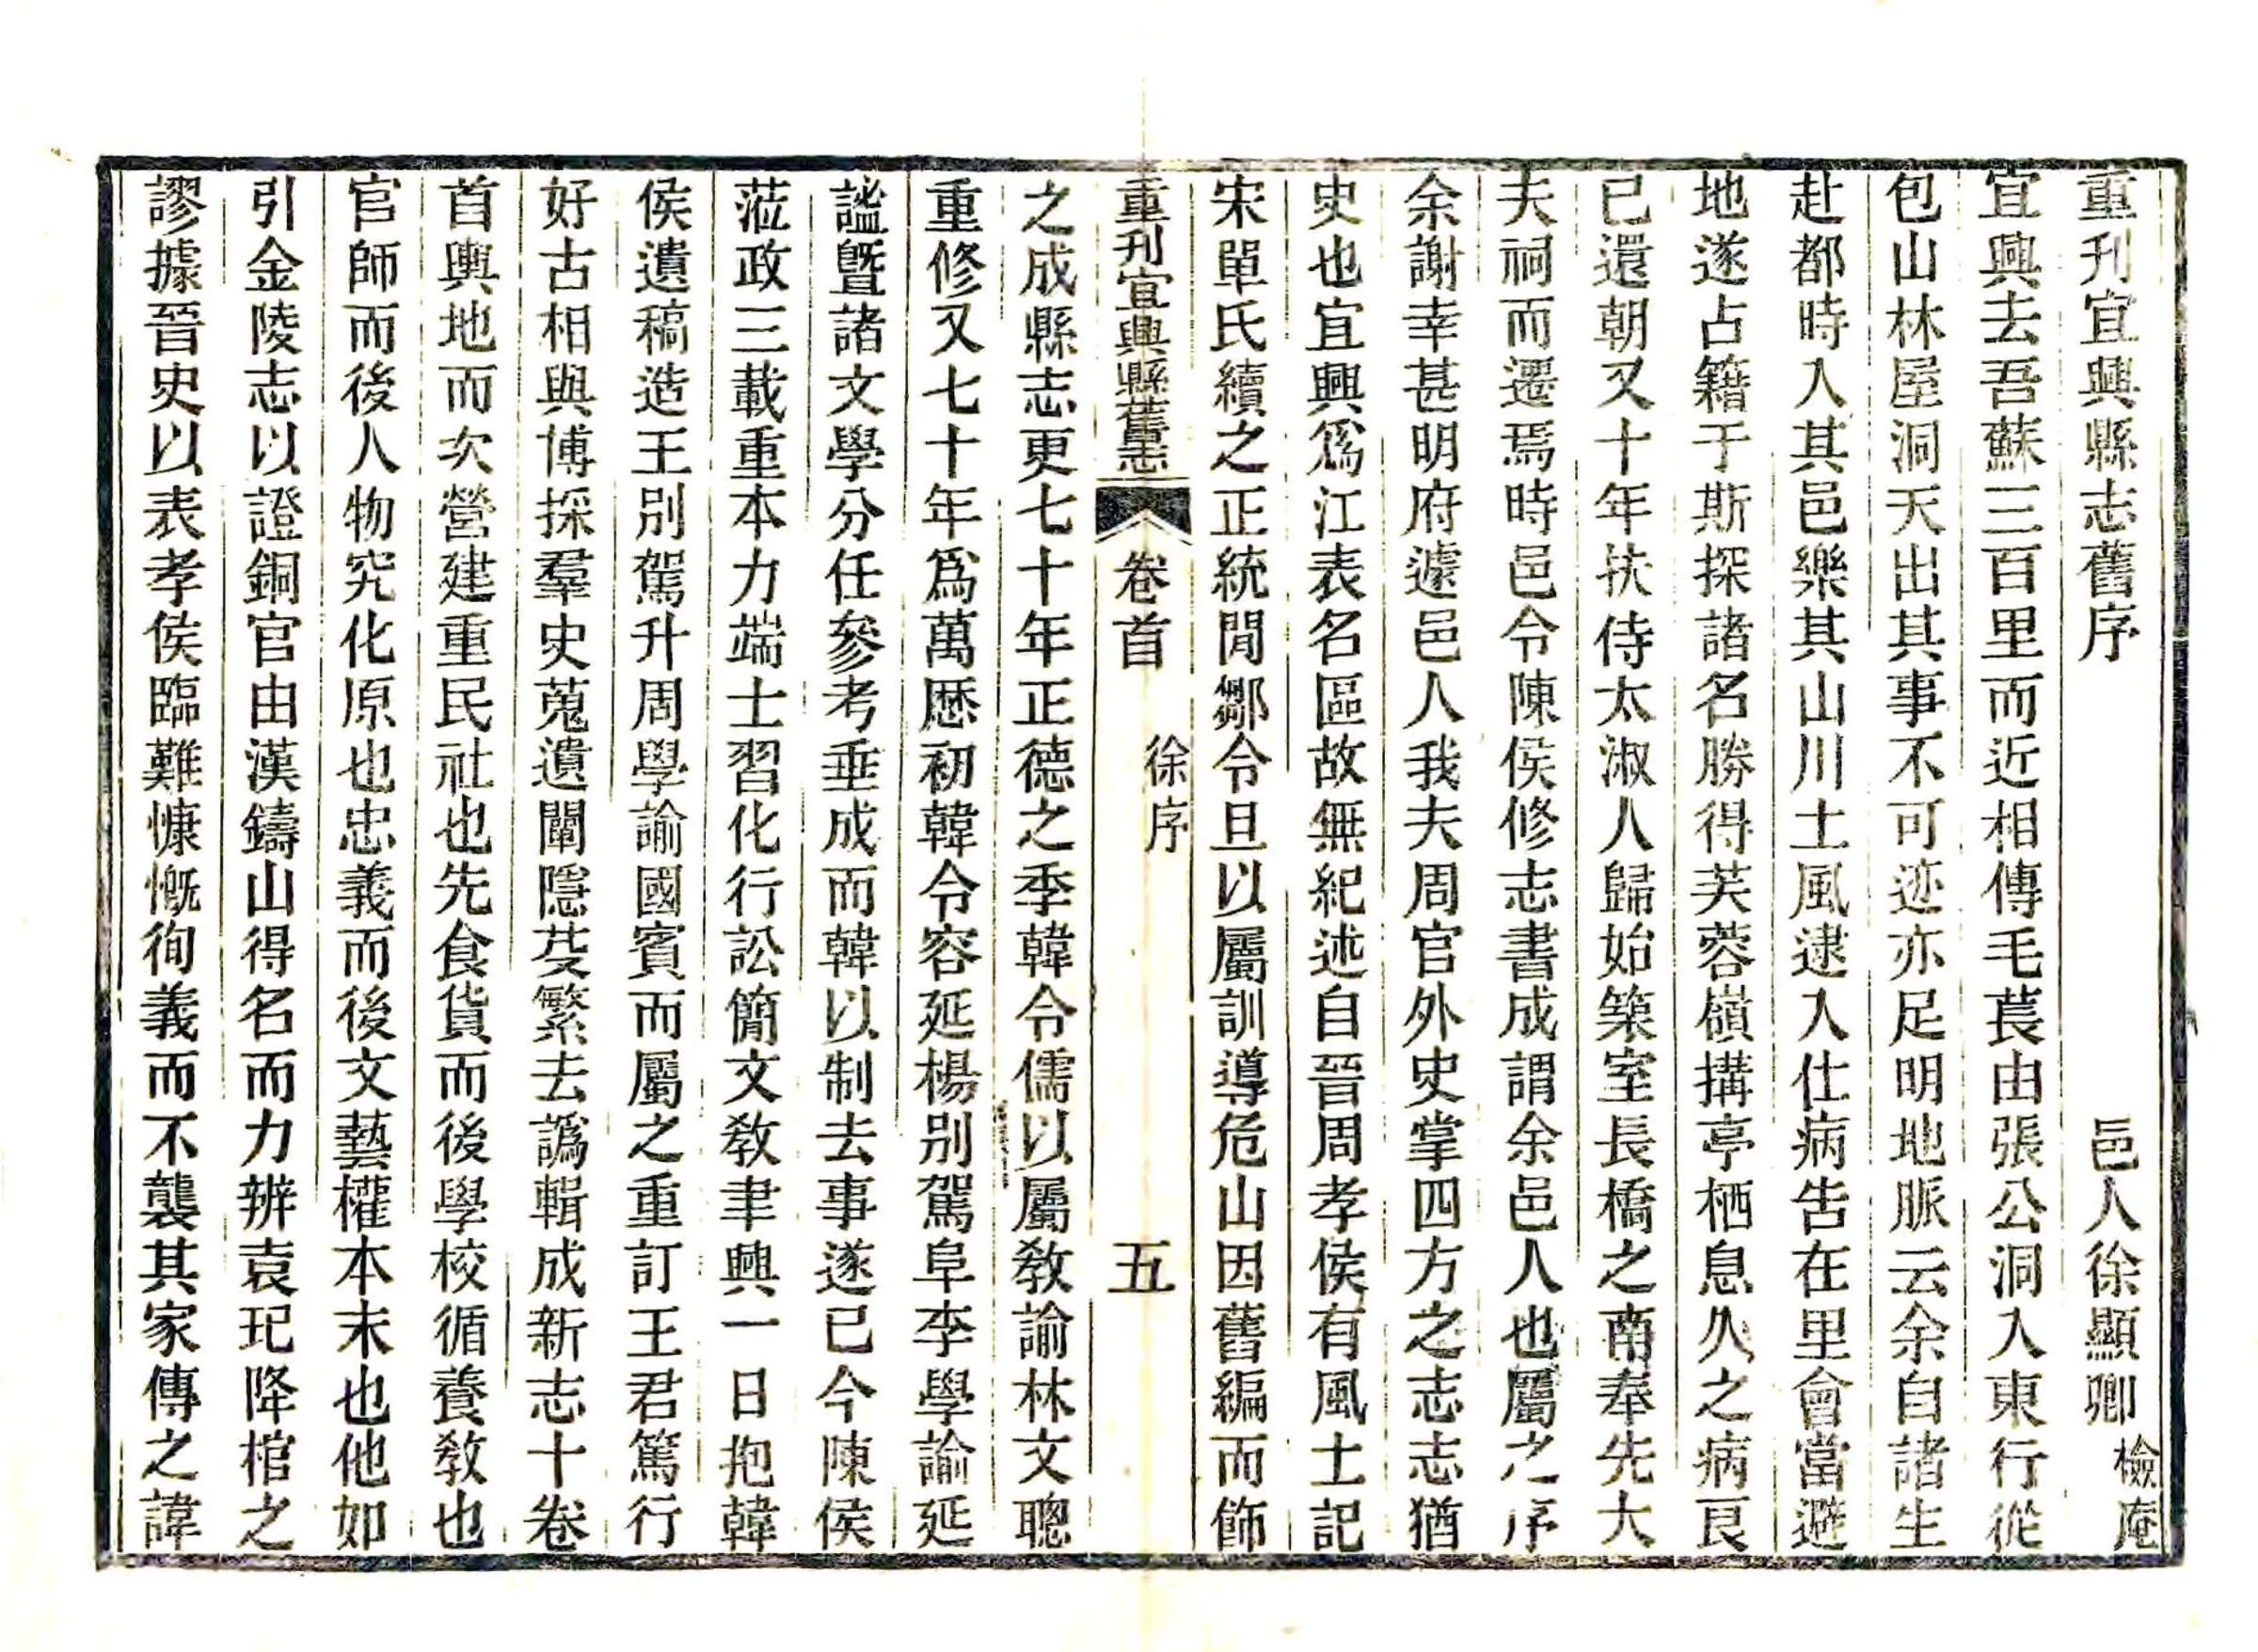 重刊宜興縣志舊序
邑人徐顯卿檢庵
宜興去吾蘇三百里而近相傳毛萇由張公洞入東行從
包山林屋洞天出其事不可迹亦足明地脈云余自諸生
赴都時入其邑樂其山川土風逮入仕病告在里會當避
地遂占籍于斯探諸名勝得芙蓉嶺搆亭栖息久之病良
已還朝又十年扶侍太淑人歸始築室長橋之南奉先大
夫祠而遷焉時邑令陳侯修志書成謂余邑人也屬之序
余謝幸甚明府遽邑人我夫周官外史掌四方之志志猶
史也宜興爲江表名區故無紀述自晉周孝侯有風土記
宋單氏續之正統閒鄒令旦以屬訓導危山因舊編而飾
重刊宜興縣舊志
卷首
徐序
五
之成縣志更七十年正德之季韓令儒以屬敎諭林文聰
重修又七十年爲萬厯初韓令容延楊別駕阜李學諭延
謐曁諸文學分任參考垂成而韓以制去事遂已今陳侯
蒞政三載重本力端士習化行訟簡文敎聿興一日抱韓
侯遺稿造王別駕升周學諭國賓而屬之重訂王君篤行
好古相與博採羣史蒐遺闡隱芟繁去譌輯成新志十卷
首輿地而次營建重民社也先食貨而後學校循養敎也
官師而後人物究化原也忠義而後文藝權本末也他如
引金陵志以證銅官由漢鑄山得名而力辨袁玘降棺之
謬據晉史以表孝侯臨難慷慨徇義而不襲其家傳之諱